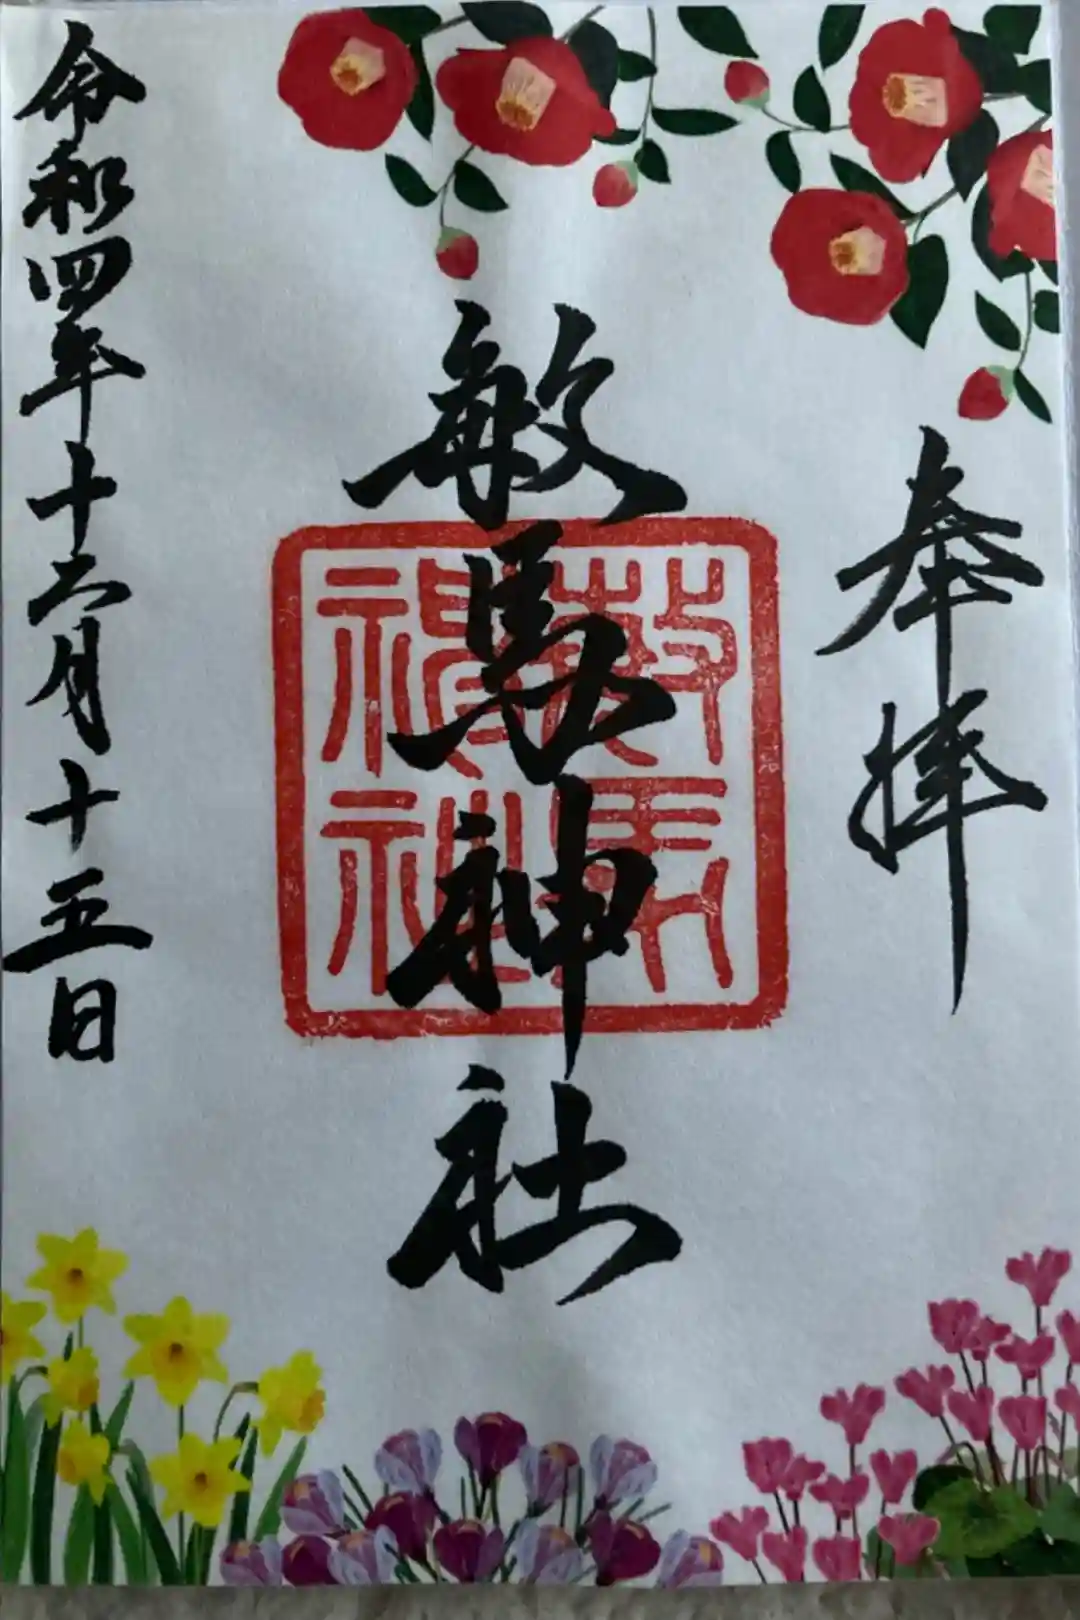 奉拝
敏馬神社
敏馬神社
令和四年十二月十五日